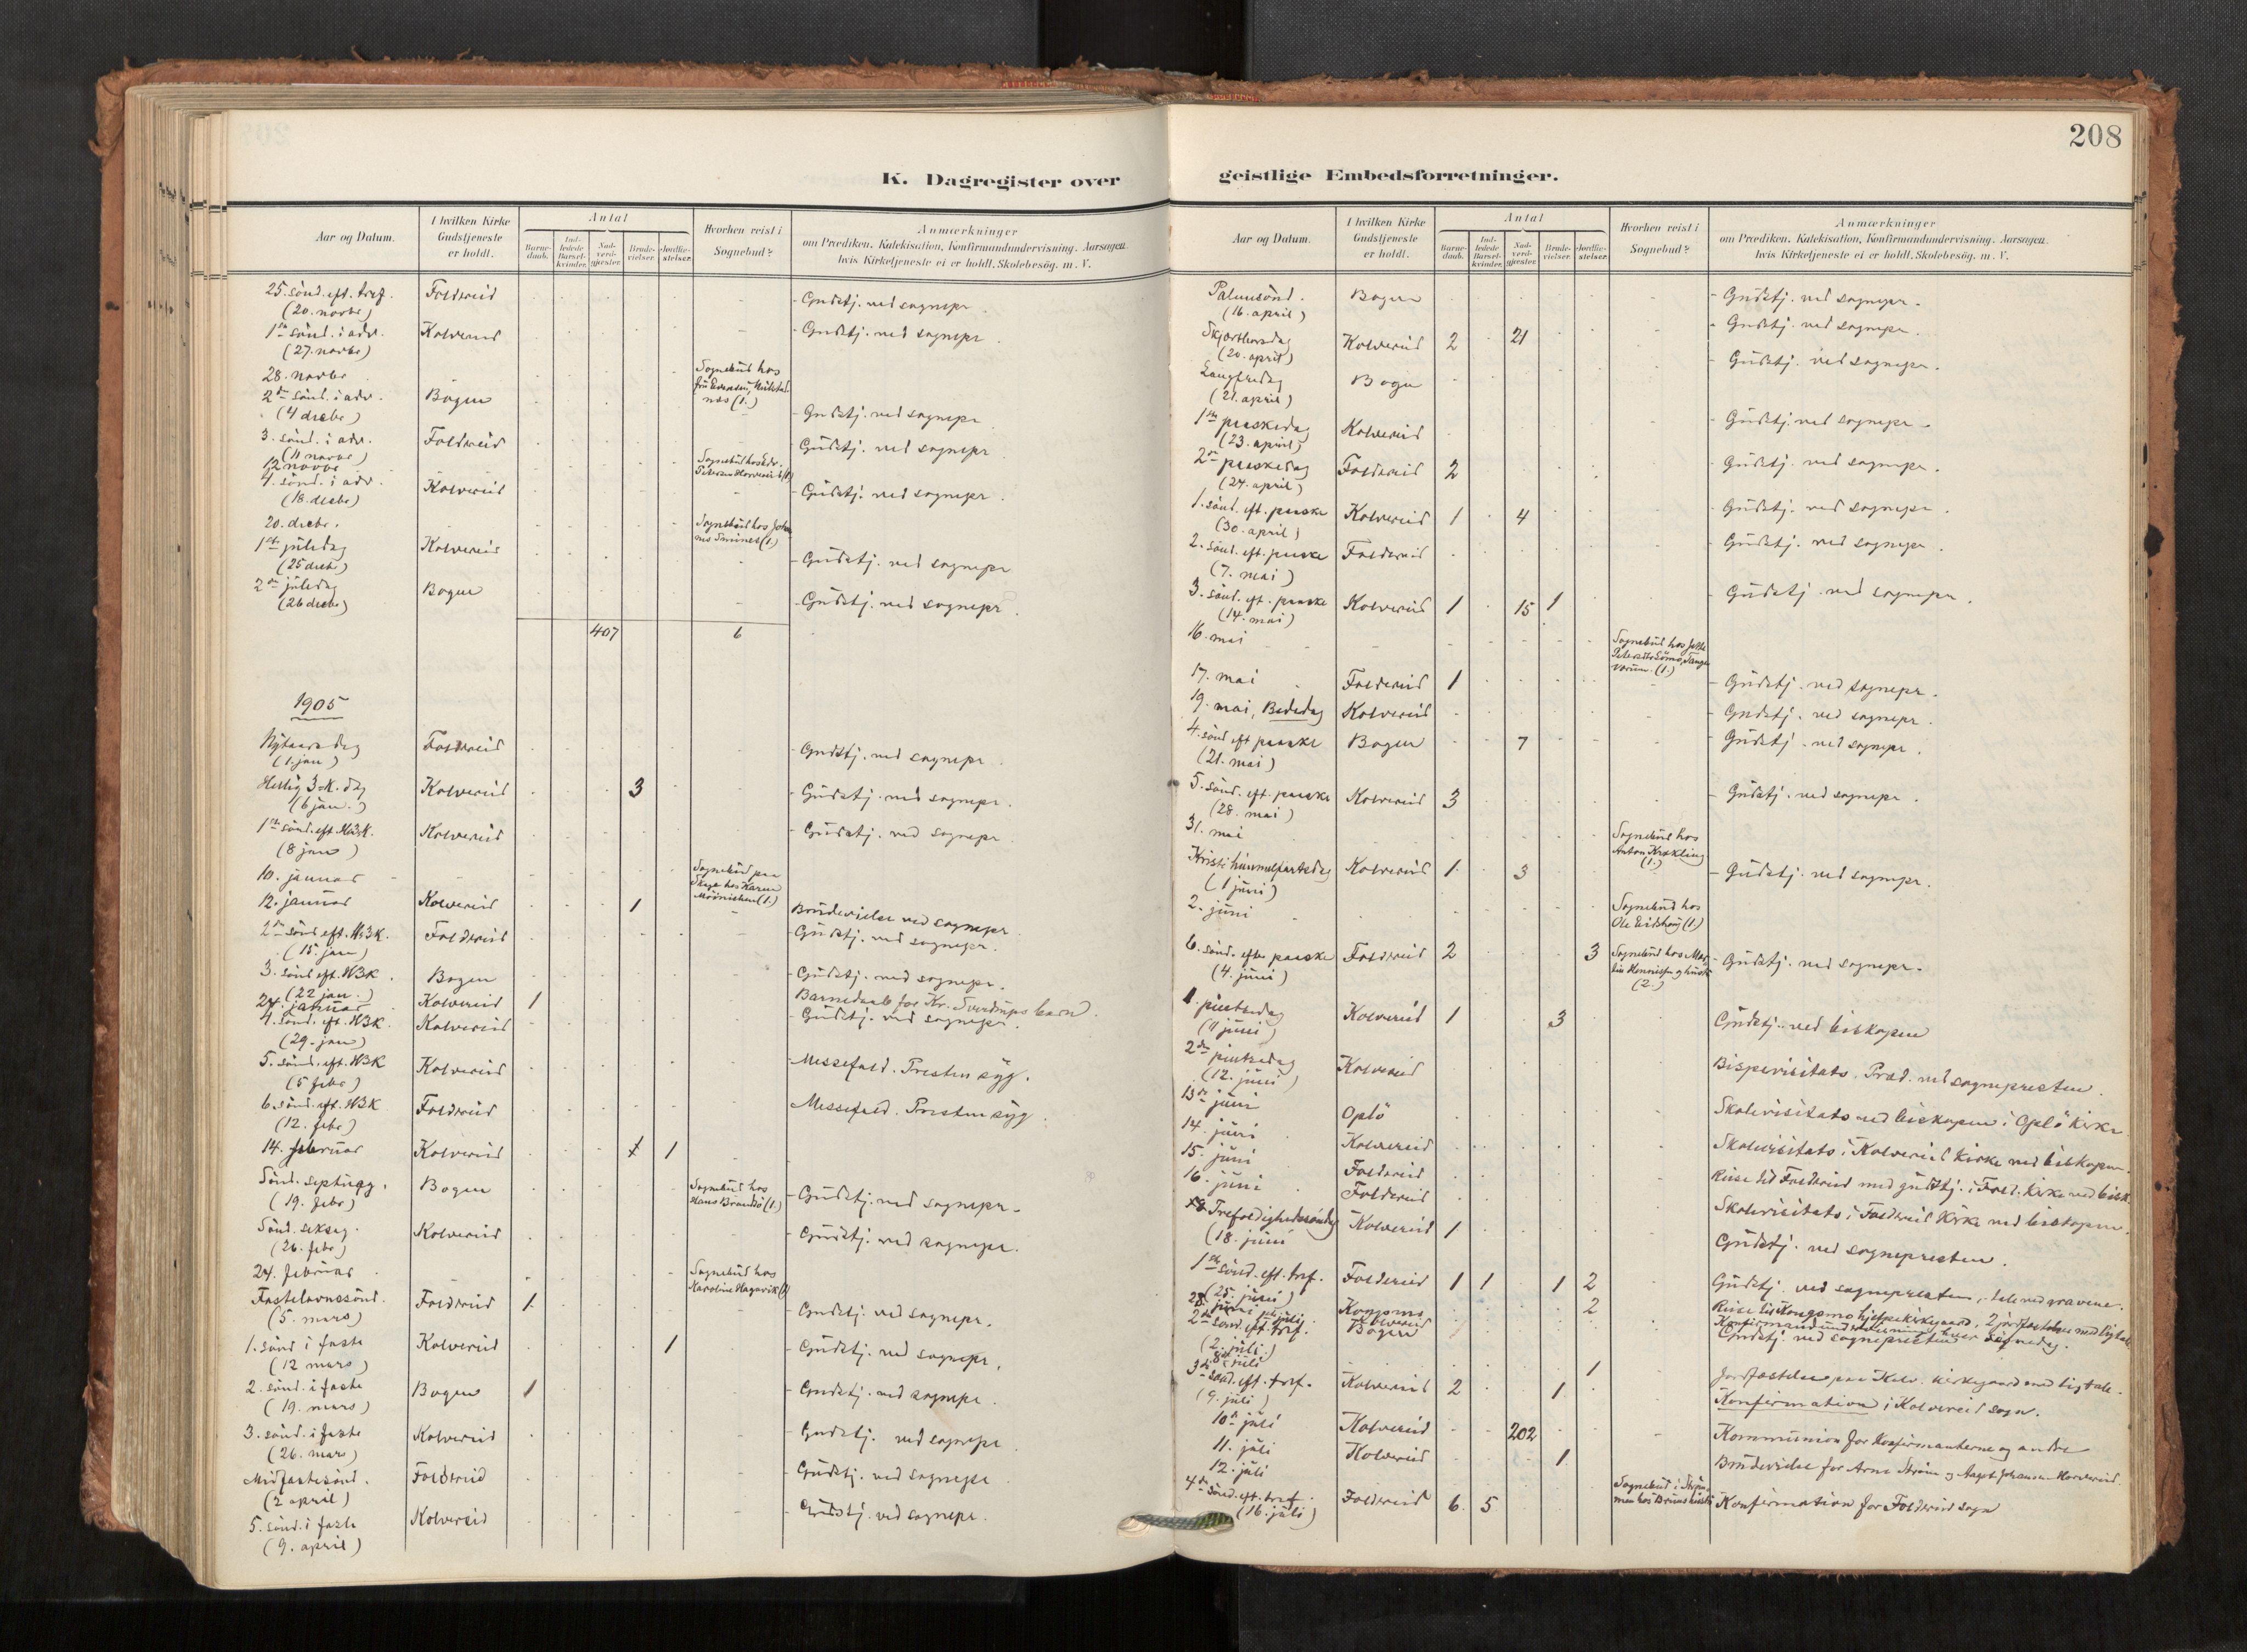 208
K. Dagregister over
geistlige Embedsforretninger.
Aar og Datum.
I hvilken Kirke
Gudstjeneste
er holdt.
Antal
Barne-
daab.
Ind-
ledede
Barsel-
kvinder.
Nad-
verd-
gjester.
Brude-
vielser.
Jordfæ-
stelser.
Hvorhen reist i
Sognebud?
Anmærkninger
om Prædiken, Katekisation, Konfirmandundervisning, Aarsagen
hvis Kirketjeneste ei er holdt, Skolebesøg. m. V.
25. sönd. eft. tref. Foldereid
(20. novbr) - Gudstj. ved sognepr.
1ste sönd. i adv. Kolvereid - Gudstj. ved sognepr.
(27. novbr)
28. novbr Sognebud hos
2den sönd. i adv. Bogen næs (1.)
(4 decbr) - Gudstj. ved sognepr.
3. sönd. i adv. Foldereid - Gudstj. ved sognepr.
(11 novbr)
12 novbr Sognebud hos
4. sönd. i adv. Kolvereid - Gudstj. ved sognepr.
(18. decbr)
20. decbr. Sognebud hos
1ste juledag Kolvereid (1.)
(25 decbr) - Gudstj. ved sognepr
2den juledag Bogen - Gudstj. ved sognepr.
(26 decbr)
407 6
1905
Nytaarsdag Foldereid - Gudstj. ved sognepr.
(1. jan)
Hellig 3 K. dag Kolvereid 3 - Gudstj. ved sognepr.
(6 jan.)
1ste sönd. eft. H3K. Kolvereid - Gudstj. ved sognepr
(8 jan)
10. januar Sognebud paa
hos Karen
(1.)
12. januar Kolvereid 1 Brudevielse ved sognepr.
2den sönd eft. H3K. Foldereid - Gudstj. ved sognepr.
(15. jan)
3. sönd eft. H3K. Bogen - Gudstj. ved sognepr.
(22 jan.)
24. januar Kolvereid 1 Barnedaab for Kr. Sverdrups barn.
4. sönd. eft. H3K. Kolvereid - Gudstj. ved sognepr.
(29. jan)
5. sönd. eft. H3K Kolvereid - Messefald. Presten syg.
(5 febr)
6. sönd. eft. H3K Foldereid Messefald. Presten syg.
(12. febr)
14. februar Kolvereid 1
Sönd. septuag. Bogen Sognebud hos
(19. febr) Hans Brandsö (1.) - Gudstj. ved sognepr.
Sönd. seksag. Kolvereid - Gudstj. ved sognepr.
(26. febr)
24. februar Sognebud hos
Karoline Hagavik (1)
Fastelavnssönd. Foldereid 1 - Gudstj. ved sognepr.
(5. mars)
1. sönd i faste Kolvereid 1 - Gudstj. ved sognepr.
(12 mars)
2. sönd. i faste Bogen 1 - Gudstj. ved sognepr.
(19. mars)
3. sönd. i faste Kolvereid - Gudstj. ved sognepr.
(26. mars)
Midfastesönd. Foldereid - Gudstj. ved sognepr.
(2 april)
5. sönd. i faste Kolvereid - Gudstj. ved sognepr.
(9. april)
Aar og Datum.
I hvilken Kirke
Gudstjeneste
er holdt.
Antal
Barne-
daab.
Ind-
ledede
Barsel-
kvinder.
Nad-
verd-
gjester.
Brude-
vielser.
Jordfæ-
stelser.
Hvorhen reist i
Sognebud?
Anmærkninger
om Prædiken, Katekisation, Konfirmandundervisning, Aarsagen
hvis Kirketjeneste ei er holdt, Skolebesøg. m. V.
Palmesönd. Bogen - Gudstj. ved sognepr.
(16. april)
Skjærthorsdag Kolvereid 2 21 - Gudstj. ved sognepr.
(20. april)
Langfredag Bogen - Gudstj. ved sognepr.
(21. april)
1ste paaskedag Kolvereid - Gudstj. ved sognepr.
(23. april)
2den paaskedag Foldereid 2 - Gudstj. ved sognepr.
(24. april)
1. sönd. eft. paaske Kolvereid 1 4 - Gudstj. ved sognepr.
(30. april)
2. sönd. eft. paaske Foldereid - Gudstj. ved sognepr.
(7. mai)
3. sönd. eft. paaske Kolvereid 1 15 1 - Gudstj. ved sognepr.
(14. mai)
16. mai Sognebud hos
(1.)
17. mai Foldereid 1 - Gudstj. ved sognepr.
19. mai, Bededag Kolvereid - Gudstj. ved sognepr.
4. sönd eft paaske Bogen 7 - Gudstj. ved sognepr.
(21. mai)
5. sönd. eft. paaske Kolvereid 3 - Gudstj. ved sognepr.
(28. mai)
31. mai Sognebud hos
Anton Krækling
(1.)
Kristi himmelfartsdag Kolvereid 1 3 - Gudstj. ved sognepr.
(1 juni)
2. juni Sognebud hos
Ole Eidshaug (1.)
6. sönd. efter paaske Foldereid 2 3 Sognebud hos
(4. juni) (2.) - Gudstj. ved sognepr.
1. pintsedag Kolvereid 1 3 Gudstj. ved biskopen
(11 juni)
2den pintsedag Kolvereid Bispevisitats. Præd. ved sognepresten.
(12. juni)
13de juni Oplö Skolevisitats ved biskopen i Oplö kirke
14. juni Kolvereid Skolevisitats i Kolvereid kirke ved biskopen.
15. juni Foldereid Reise til Foldereid med gudstj. i Fold. kirke ved bisk.
16. juni Foldereid Skolevisitats i Foldereid kirke ved biskopen.
Trefoldighedssöndag Kolvereid 1 Gudstj. ved sognepresten.
(18. juni
1ste sönd. eft. tref. Foldereid 1 1 1 2 Gudstj. ved sognepresten, tale ved gravene.
(25. juni)
28. juni Kongsmo 2 Reise til Kongsmo hjelpekirkegaard, 2 jordfæstelser med ligtale
Kolvereid Konfirmandundervisning hver
2den sönd. eft. tref. Bogen Gudstj. ved sognepresten
(2. juli)
8de juli 1 Jordfæstelse paa Kolv. kirkegaard med ligtale.
3die sönd. eft. tref. Kolvereid 2 1 Konfirmation i Kolvereid sogn.
(9. juli)
10de juli Kolvereid 202 Kommunion for Konfirmanterne og andre
11. juli Kolvereid 1 Brudevielse for Arne Ström og Aagot Johansen Horvereid.
12. juli Sognebud i
4de sönd. eft. tref. Foldereid 6 5 Konfirmation for Foldereid sogn
(16. juli)